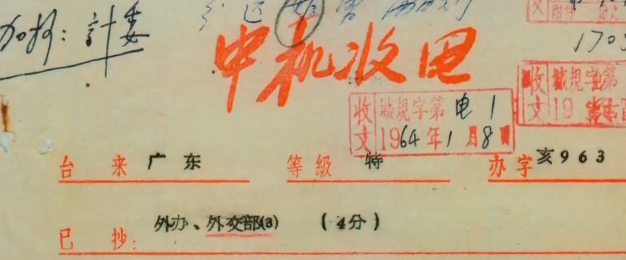 加抄：计委
中机收电
170
收文 城規字第电1
1964年1月8日
收文 城規字第
19
台来 广东 等级 特 办字 亥963
已抄： 外办、外交部(3) (4分)